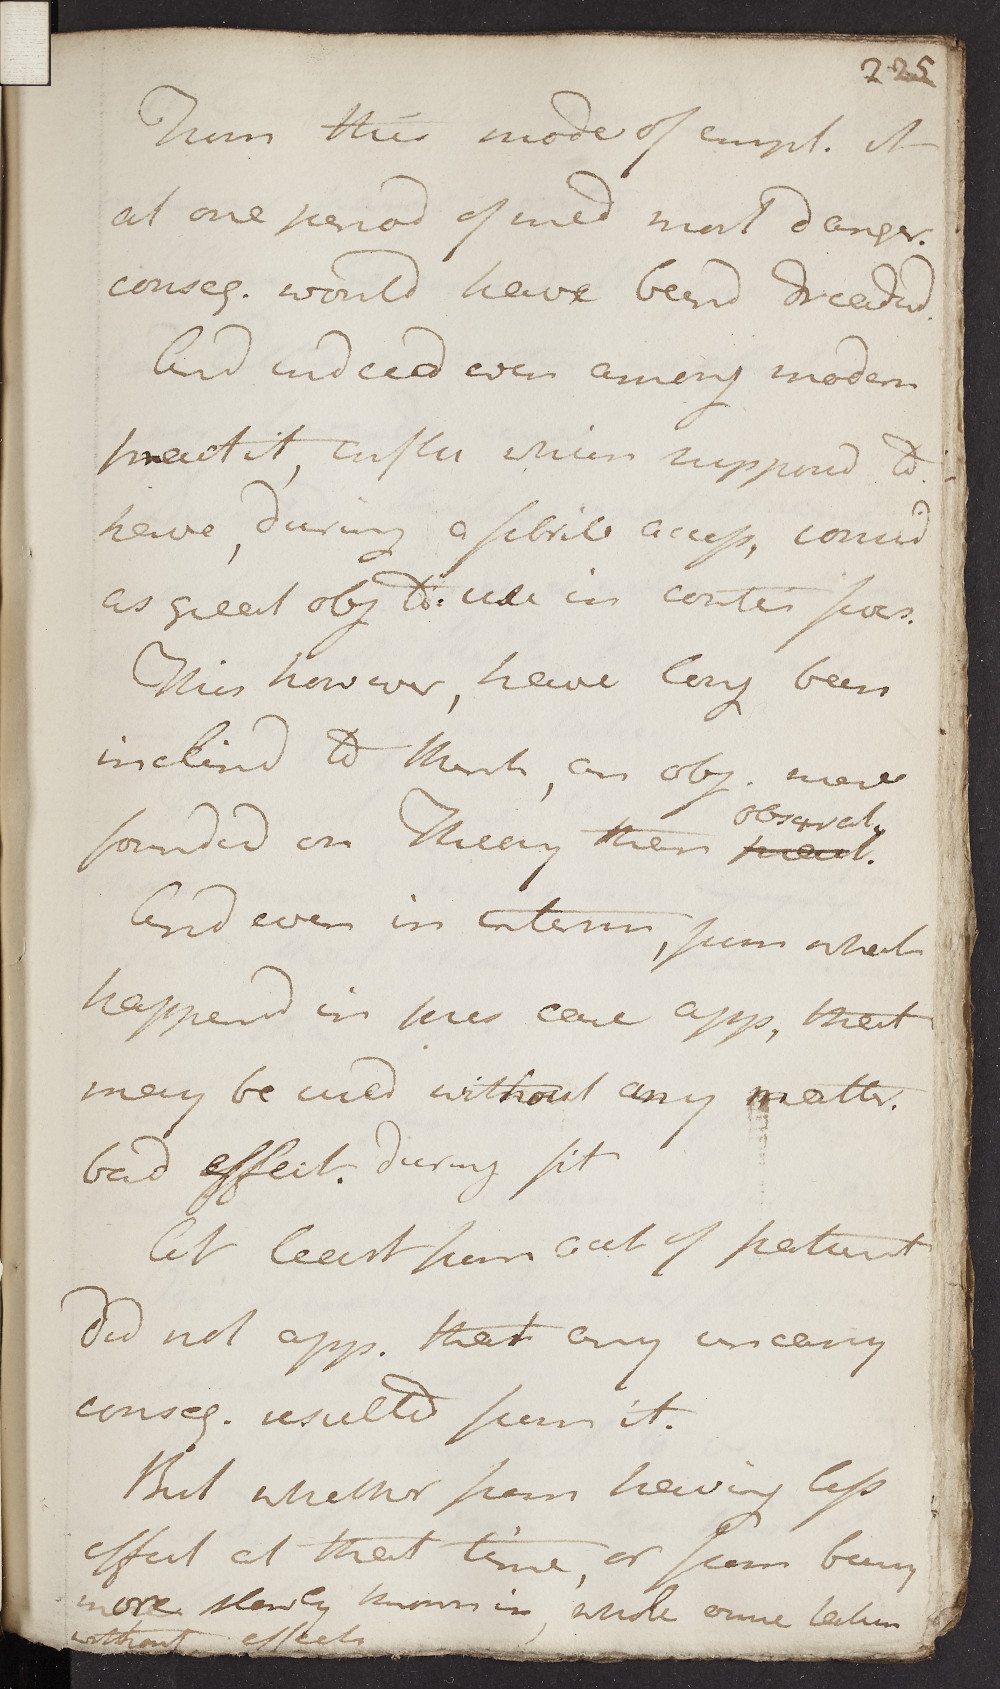 225
From this mode of empl. it
at one period of med most danger.
conseq. would have been dreaded.
And indeed even among modern
practit, effer which supposed to
have, during a febrile access, consid
as great obj to use in contin fever.
This however, have long been
inclined to think, an obj. more
founded on Theory than observat.
pract.
And even in interm, from what
happened in pres case app, that
may be used without any matter.
bad effect. during fit
At least from acct of patient
did not app. that any uneasy
conseq. resulted from it.
But whether from having less
effect at that time, or from being
more slowly thrown in, whole ounce taken
without effects